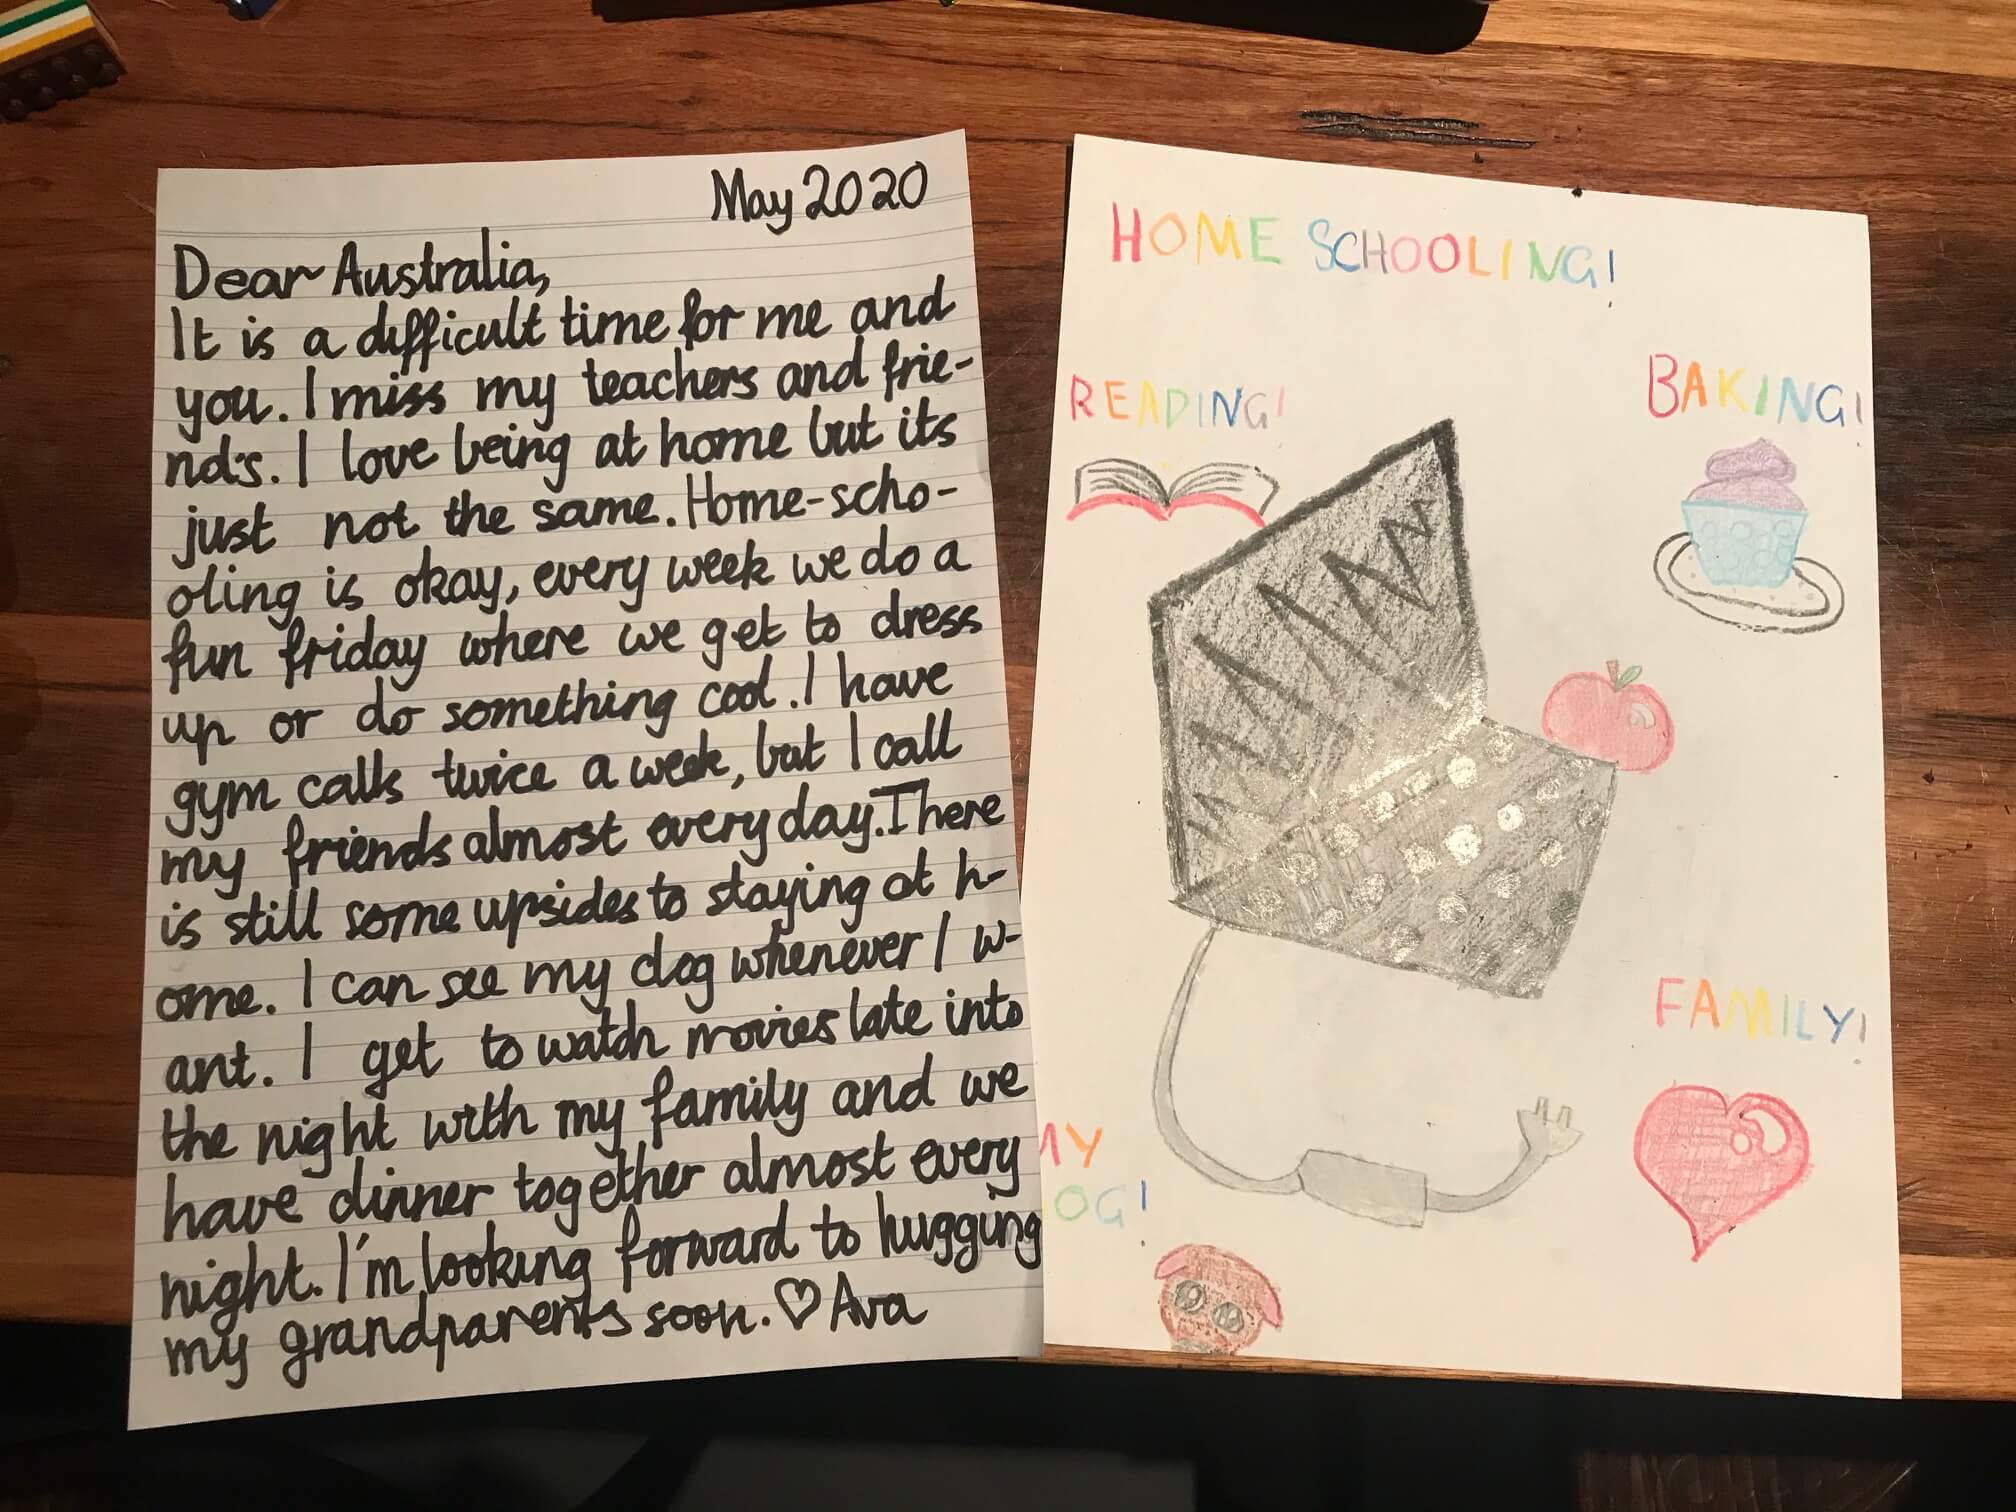 May 2020
Dear Australia,
It is a difficult time for me and
you. I miss my teachers and frie-
nds. I love being at home but its
just not the same. Home-scho-
oling is okay, every week we do a
fun friday where we get to dress
up or do something cool. I have
gym calls twice a week, but I call
my friends almost everyday. There
is still some upsides to staying at h-
ome. I can see my dog whenever I w-
ant. I get to watch movies late into
the night with my family and we
have dinner together almost every
night. I'm looking forward to hugging
my grandparents soon. ♡ Ava
HOME SCHOOLING!
READING!
BAKING!
FAMILY!
MY
OG!